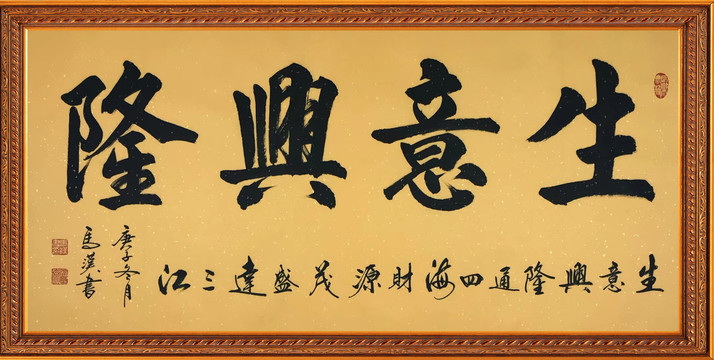 生意興隆
生意興隆通四海財源茂盛達三江
庚子冬月
馬漢書